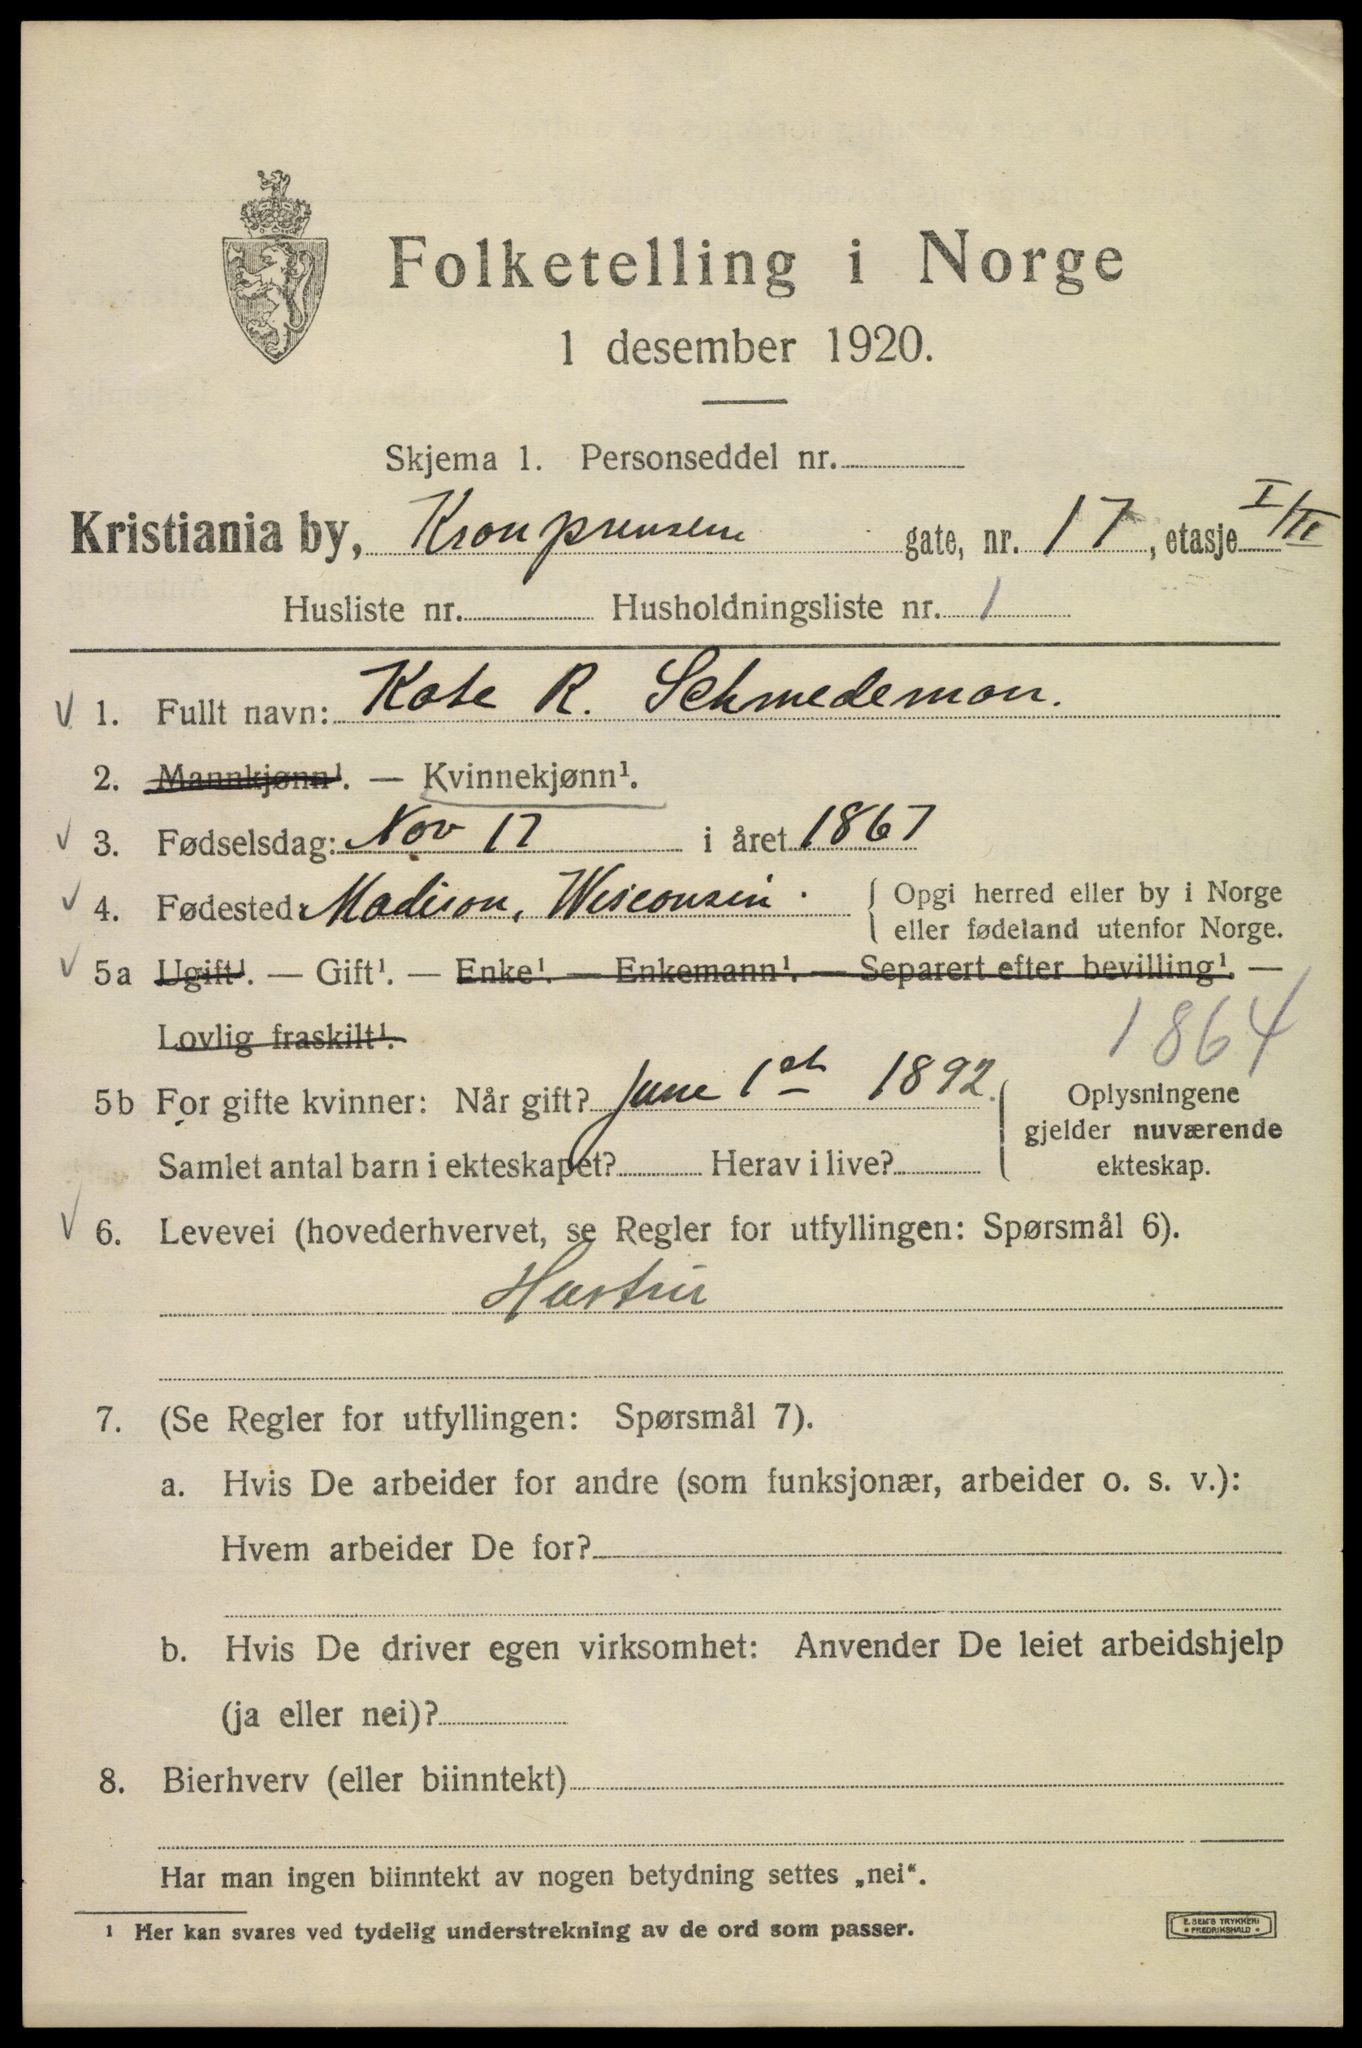 Folketelling i Norge
1 desember 1920.
Skjema 1. Personseddel nr.
Kristiania by, Kronprinsens gate, nr. 17, etasje I/II
Husliste nr. Husholdningsliste nr. 1
1. Fullt navn: Kate R. Schmedeman.
2. Mannkjønn¹. — Kvinnekjønn¹.
3. Fødselsdag: Nov 17 i året 1867
4. Fødested: Madison, Wisconsin. Opgi herred eller by i Norge
eller fødeland utenfor Norge.
5a Ugift¹. — Gift¹. — Enke¹. — Enkemann¹. — Separert efter bevilling¹. —
Lovlig fraskilt¹.
1864
5b For gifte kvinner: Når gift? June 1st 1892. Oplysningene
gjelder nuværende
Samlet antal barn i ekteskapet? Herav i live? ekteskap.
6. Levevei (hovederhvervet, se Regler for utfyllingen: Spørsmål 6).
Hustru
7. (Se Regler for utfyllingen: Spørsmål 7).
a. Hvis De arbeider for andre (som funksjonær, arbeider o. s. v.):
Hvem arbeider De for?
b. Hvis De driver egen virksomhet: Anvender De leiet arbeidshjelp
(ja eller nei)?
8. Bierhverv (eller biinntekt)
Har man ingen biinntekt av nogen betydning settes „nei“.
¹ Her kan svares ved tydelig understrekning av de ord som passer.
E. SEM'S TRYKKERI
FREDRIKSHALD